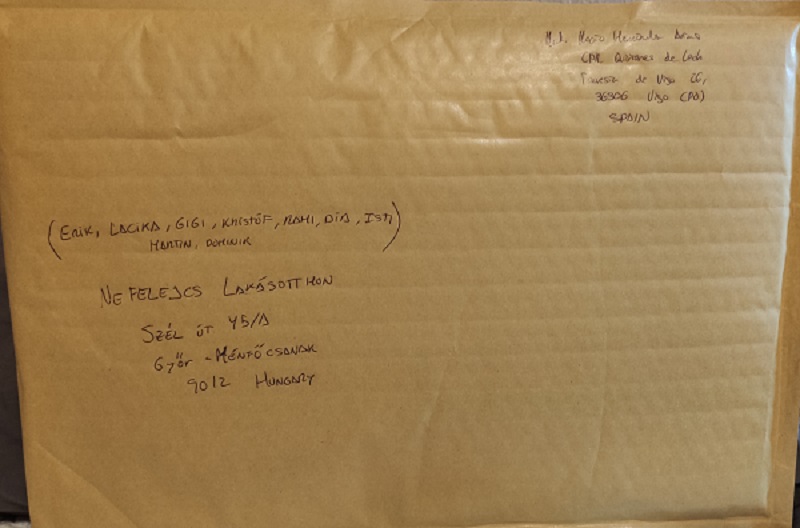 CPR Quiñones de León
Travesía de Vigo
36206 Vigo (PO)
SPAIN
(ERIK, LACIKA, GIGI, KRISTÓF, RAMI, DIA, ISTI
MARTIN, DOMINIK)
NEFELEJCS LAKÁSOTTHON
SZÉL ÚT 45/A
Győr - MÉNFŐCSANAK
9012 HUNGARY